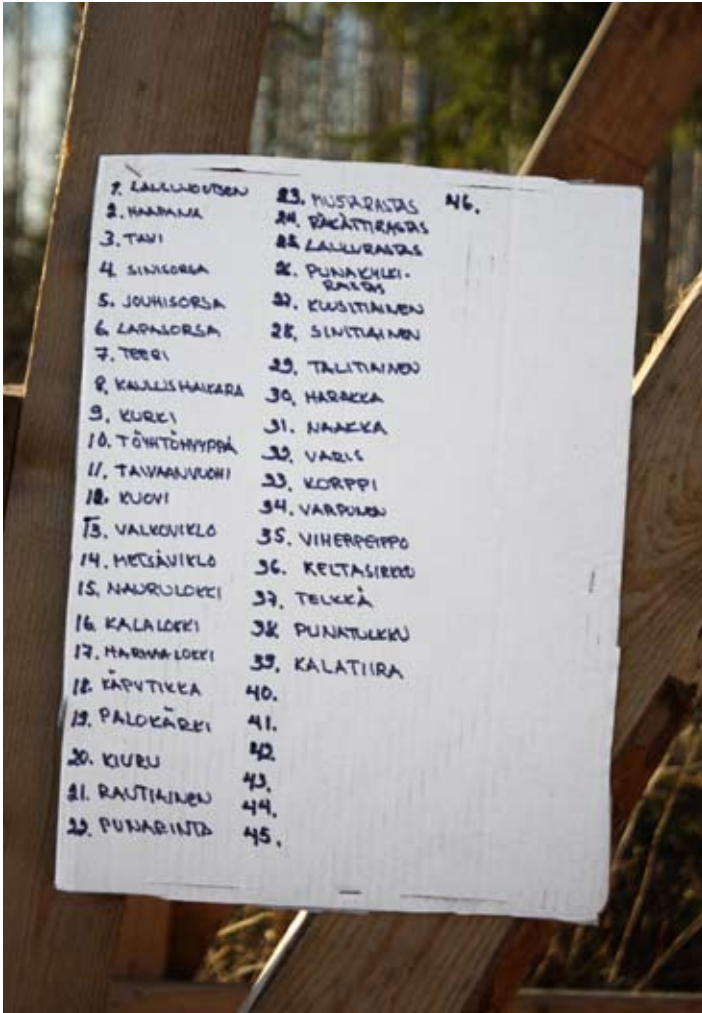 1. LAULUJOUTSEN
2. HAAPANA
3. TAVI
4. SINISORSA
5. JOUHISORSA
6. LAPASORSA
7. TEERI
8. KAULUSHAIKARA
9. KURKI
10. TÖYHTÖHYYPPÄ
11. TAIVAANVUOHI
12. KUOVI
13. VALKOVIKLO
14. METSÄVIKLO
15. NAURULOKKI
16. KALALOKKI
17. HARMAALOKKI
18. KÄPYTIKKA
19. PALOKÄRKI
20. KIURU
21. RAUTIAINEN
22. PUNARINTA
23. MUSTARASTAS
24. RÄKÄTTIRASTAS
25. LAULURASTAS
26. PUNAKYLKI-
RASTAS
27. KUUSITIAINEN
28. SINITIAINEN
29. TALITIAINEN
30. HARAKKA
31. NAAKKA
32. VARIS
33. KORPPI
34. VARPUNEN
35. VIHERPEIPPO
36. KELTASIRKKU
37. TELKKÄ
38. PUNATULKKU
39. KALATIIRA
40.
41.
42.
43.
44.
45.
46.